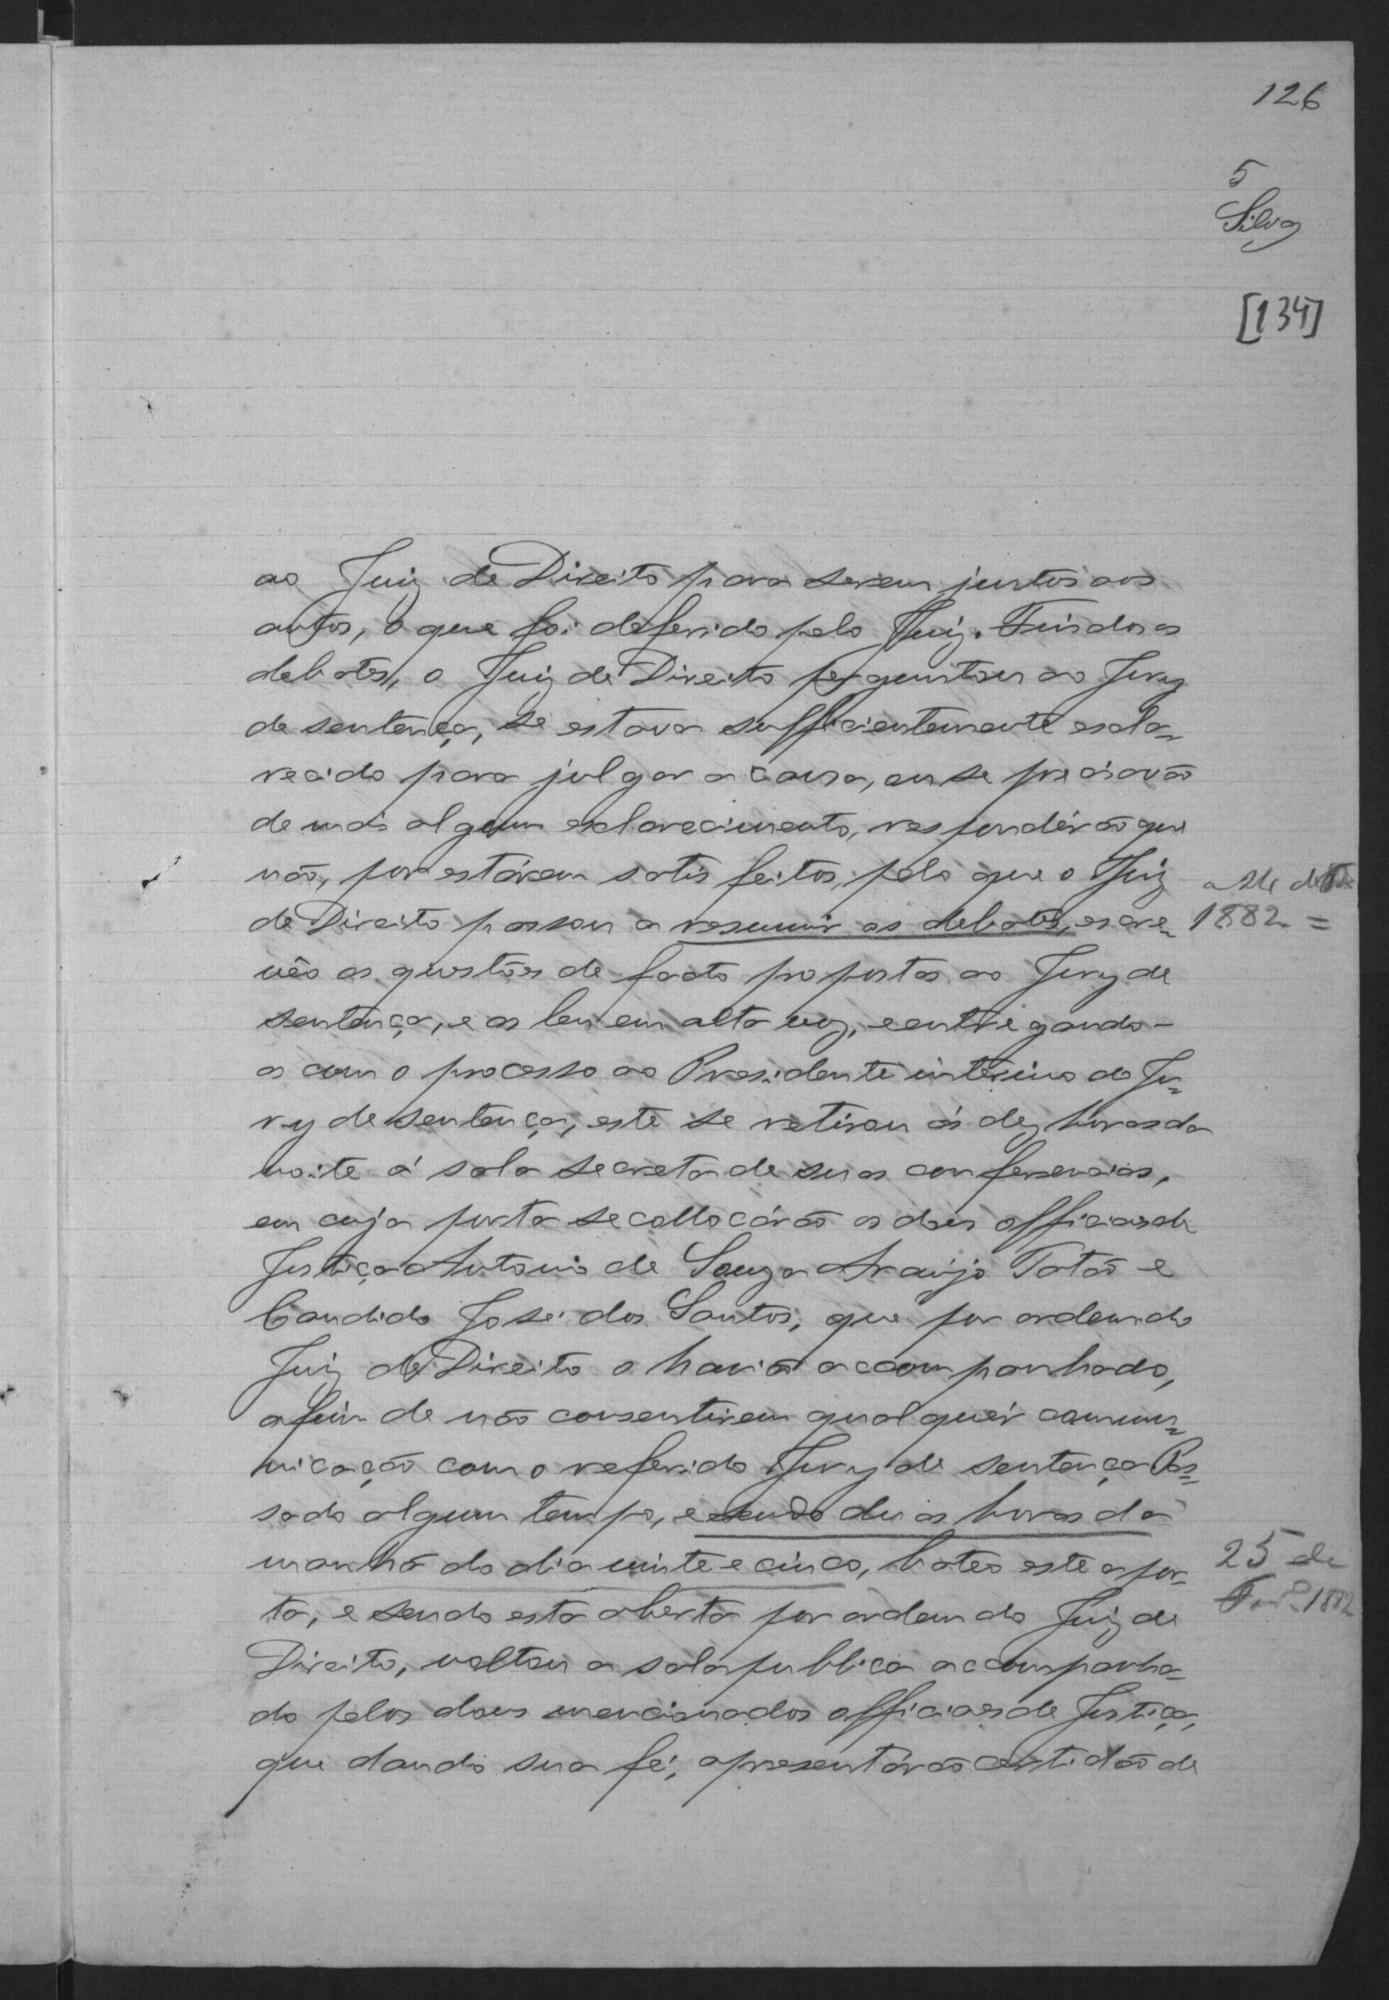 126
5
Silva
[134]
ao Juiz de Direito para serem juntos aos
autos, o que foi deferido pelo Juiz. Findos os
debates, o Juiz de Direito perguntou ao Jury
de sentença, se estava sufficientemente escla-
recido para julgar a causa, ou se precisavão
de mais algum esclarecimento, respondérão que
não, por estárem satisfeitos, pelo que o Juiz
de Direito passou a resumir os debates, escre-
1882 =
vêo as questões de facto propostas ao Jury de
sentença, e as leu em alta voz, e entregando-
as com o processo ao Presidente interino do Ju-
ry de sentença, este se retirou ás dez horas da
noite á sala secreta de suas conferencias,
em cuja porta se collocárão os dois officiaes de
Justiça Antonio de Souza Araujo Tatão e
Candido José dos Santos, que por ordem do
Juiz de Direito o havião accompanhado,
afim de não consentirem qualquér commu-
nicação com o referido Jury de sentença. Pas-
sado algum tempo, e sendo duas horas da
manhã do dia vinte e cinco, bateo este a por-
25 de
1882
ta, e sendo esta aberta por ordem do Juiz de
Direito, voltou a sala publica accompanha-
do pelos dous mencionados officiaes de Justiça,
que dando sua fé, apresentárão certidão de